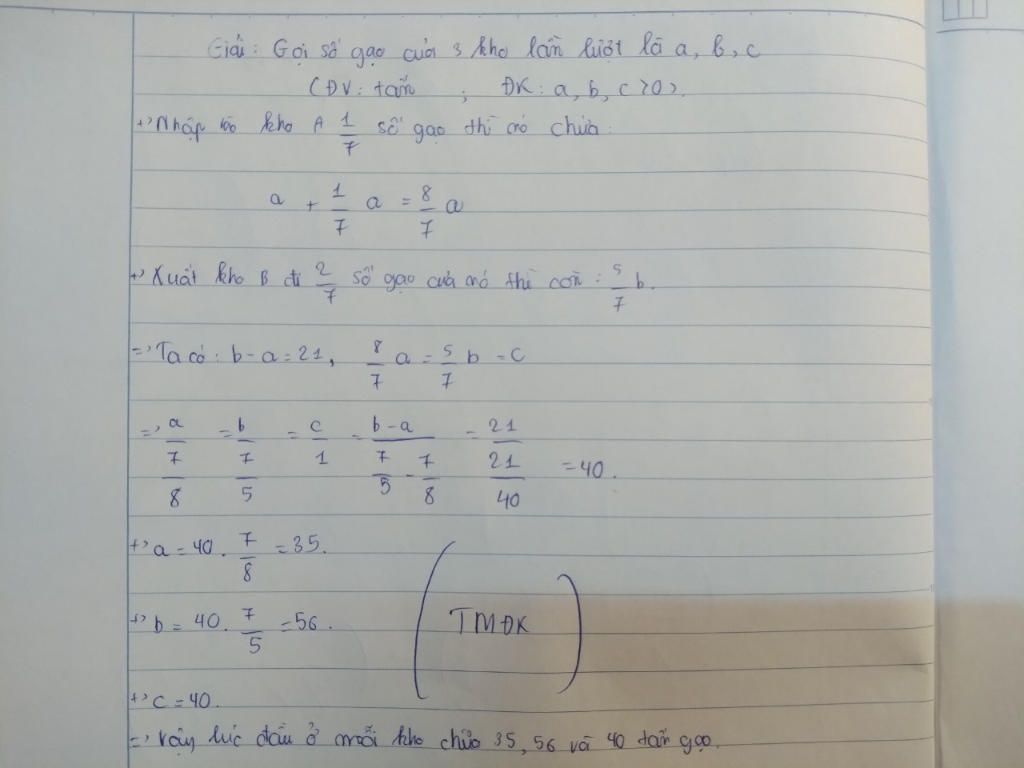 Giải: Gọi số gạo của 3 kho lần lượt là a, b, c
(ĐV: tấn ; ĐK: a, b, c > 0).
+> Nhập vào kho A 1/7 số gạo thì nó chứa:
a + 1/7 a = 8/7 a
+> Xuất kho B đi 2/7 số gạo của nó thì còn: 5/7 b.
=> Ta có: b - a = 21, 8/7 a = 5/7 b = c
=> a/(7/8) = b/(7/5) = c/1 = (b - a)/(7/5 - 7/8) = 21/(21/40) = 40.
+> a = 40 . 7/8 = 35.
+> b = 40 . 7/5 = 56. (TMĐK)
+> c = 40.
=> Vậy lúc đầu ở mỗi kho chứa 35, 56 và 40 tấn gạo.